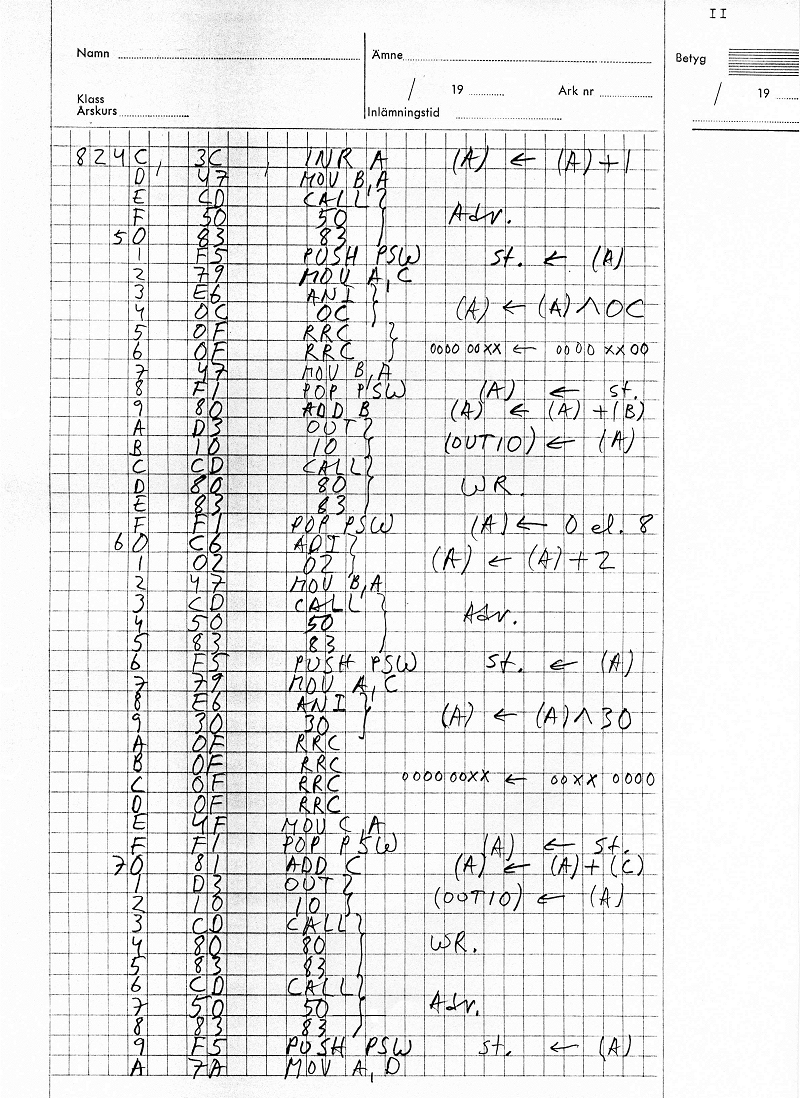 II
Namn
Ämne
Betyg
/ 19
Ark nr
/ 19
Klass
Årskurs
Inlämningstid
824C 3C INR A (A) ← (A)+1
D 47 MOV B,A
E CD CALL
F 50 50 Adr.
50 83 83
1 F5 PUSH PSW st. ← (A)
2 79 MOV A,C
3 E6 ANI
4 0C 0C (A) ← (A)∧0C
5 0F RRC
6 0F RRC 0000 00XX ← 0000 XX00
7 47 MOV B,A
8 F1 POP PSW (A) ← st.
9 80 ADD B (A) ← (A)+(B)
A D3 OUT
B 10 10 (OUT10) ← (A)
C CD CALL
D 80 80 WR.
E 83 83
F F1 POP PSW (A) ← 0 el. 8
60 C6 ADI
1 02 02 (A) ← (A)+2
2 47 MOV B,A
3 CD CALL
4 50 50 Adr.
5 83 83
6 F5 PUSH PSW st. ← (A)
7 79 MOV A,C
8 E6 ANI
9 30 30 (A) ← (A)∧30
A 0F RRC
B 0F RRC
C 0F RRC 0000 00XX ← 00XX 0000
D 0F RRC
E 4F MOV C,A
F F1 POP PSW (A) ← st.
70 81 ADD C (A) ← (A)+(C)
1 D3 OUT
2 10 10 (OUT10) ← (A)
3 CD CALL
4 80 80 WR.
5 83 83
6 CD CALL
7 50 50 Adr.
8 83 83
9 F5 PUSH PSW st. ← (A)
A 7A MOV A,D